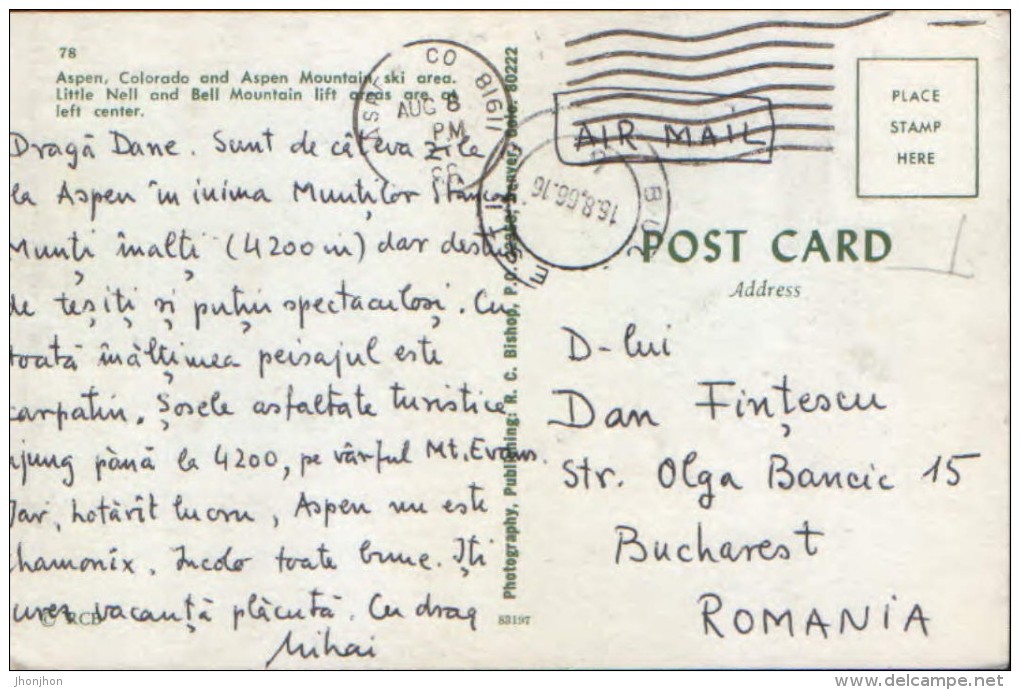 78
Aspen, Colorado and Aspen Mountain ski area.
Little Nell and Bell Mountain lift areas are at
left center.
Dragă Dane. Sunt de câteva zile
la Aspen în inima Munților Stâncoși
Munți înalți (4200 m) dar destul
de teșiți și puțin spectaculoși. Cu
toată înălțimea peisajul este
carpatin. Șosele asfaltate turistice
ajung până la 4200, pe vârful Mt. Evans.
Dar, hotărît lucru, Aspen nu este
Chamonix. Încolo toate bune. Îți
urez vacanță plăcută. Cu drag
Mihai
© RCB
83197
Photography, Publishing: R. C. Bishop, P.O. Denver, Colo. 80222
CO 81611
AUG 8
PM
AIR MAIL
16.8.66.16
PLACE
STAMP
HERE
POST CARD
Address
D-lui
Dan Fințescu
Str. Olga Bancic 15
Bucharest
ROMANIA
jhonjhon
www.delcampe.net